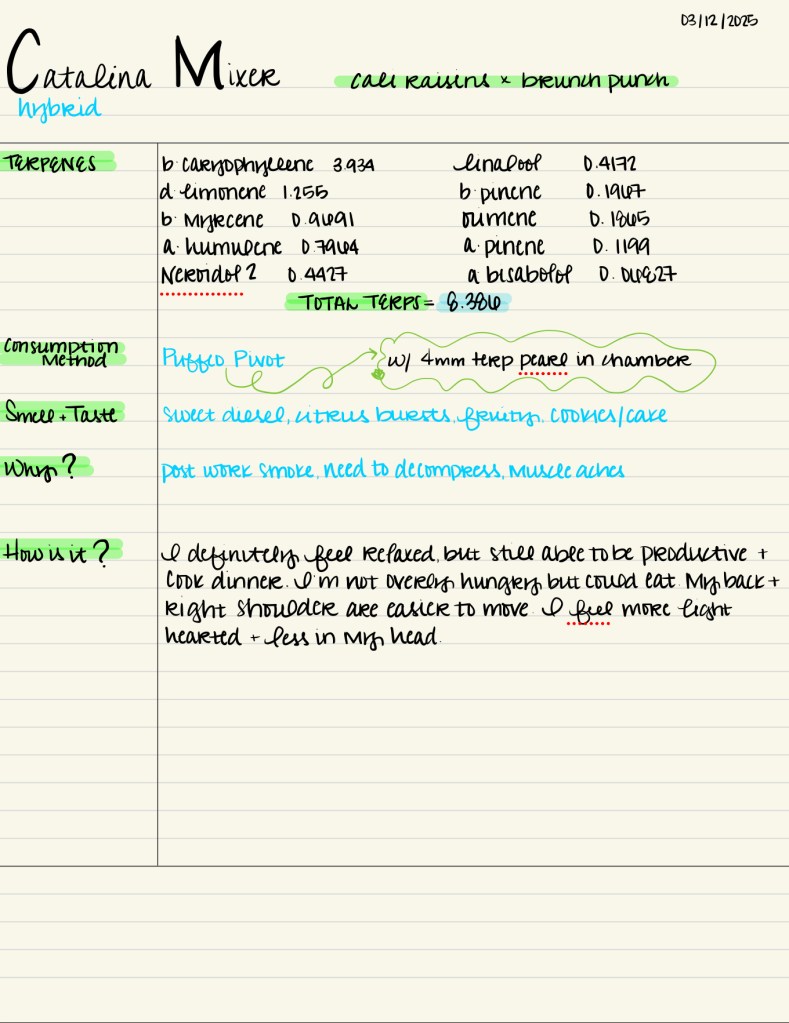 03/12/2025
Catalina Mixer
cali raisins x brunch punch
hybrid
TERPENES
b. caryophyllene 3.934
linalool 0.4172
d. limonene 1.255
b. pinene 0.1967
b. Myrecene 0.9691
ocimene 0.1865
a. humulene 0.7964
a. pinene 0.1199
Neroidol 2 0.4427
a bisabolol 0.06827
TOTAL TERPS = 8.386
Consumption
Method
Puffco Pivot
w/ 4mm terp pearl in chamber
Smell + Taste
sweet diesel, citrus bursts, fruity, cookies/cake
Why?
post work smoke, need to decompress, muscle aches
How is it?
I definitely feel relaxed, but still able to be productive +
cook dinner. I'm not overly hungry but could eat. My back +
right shoulder are easier to move. I feel more light
hearted + less in my head.